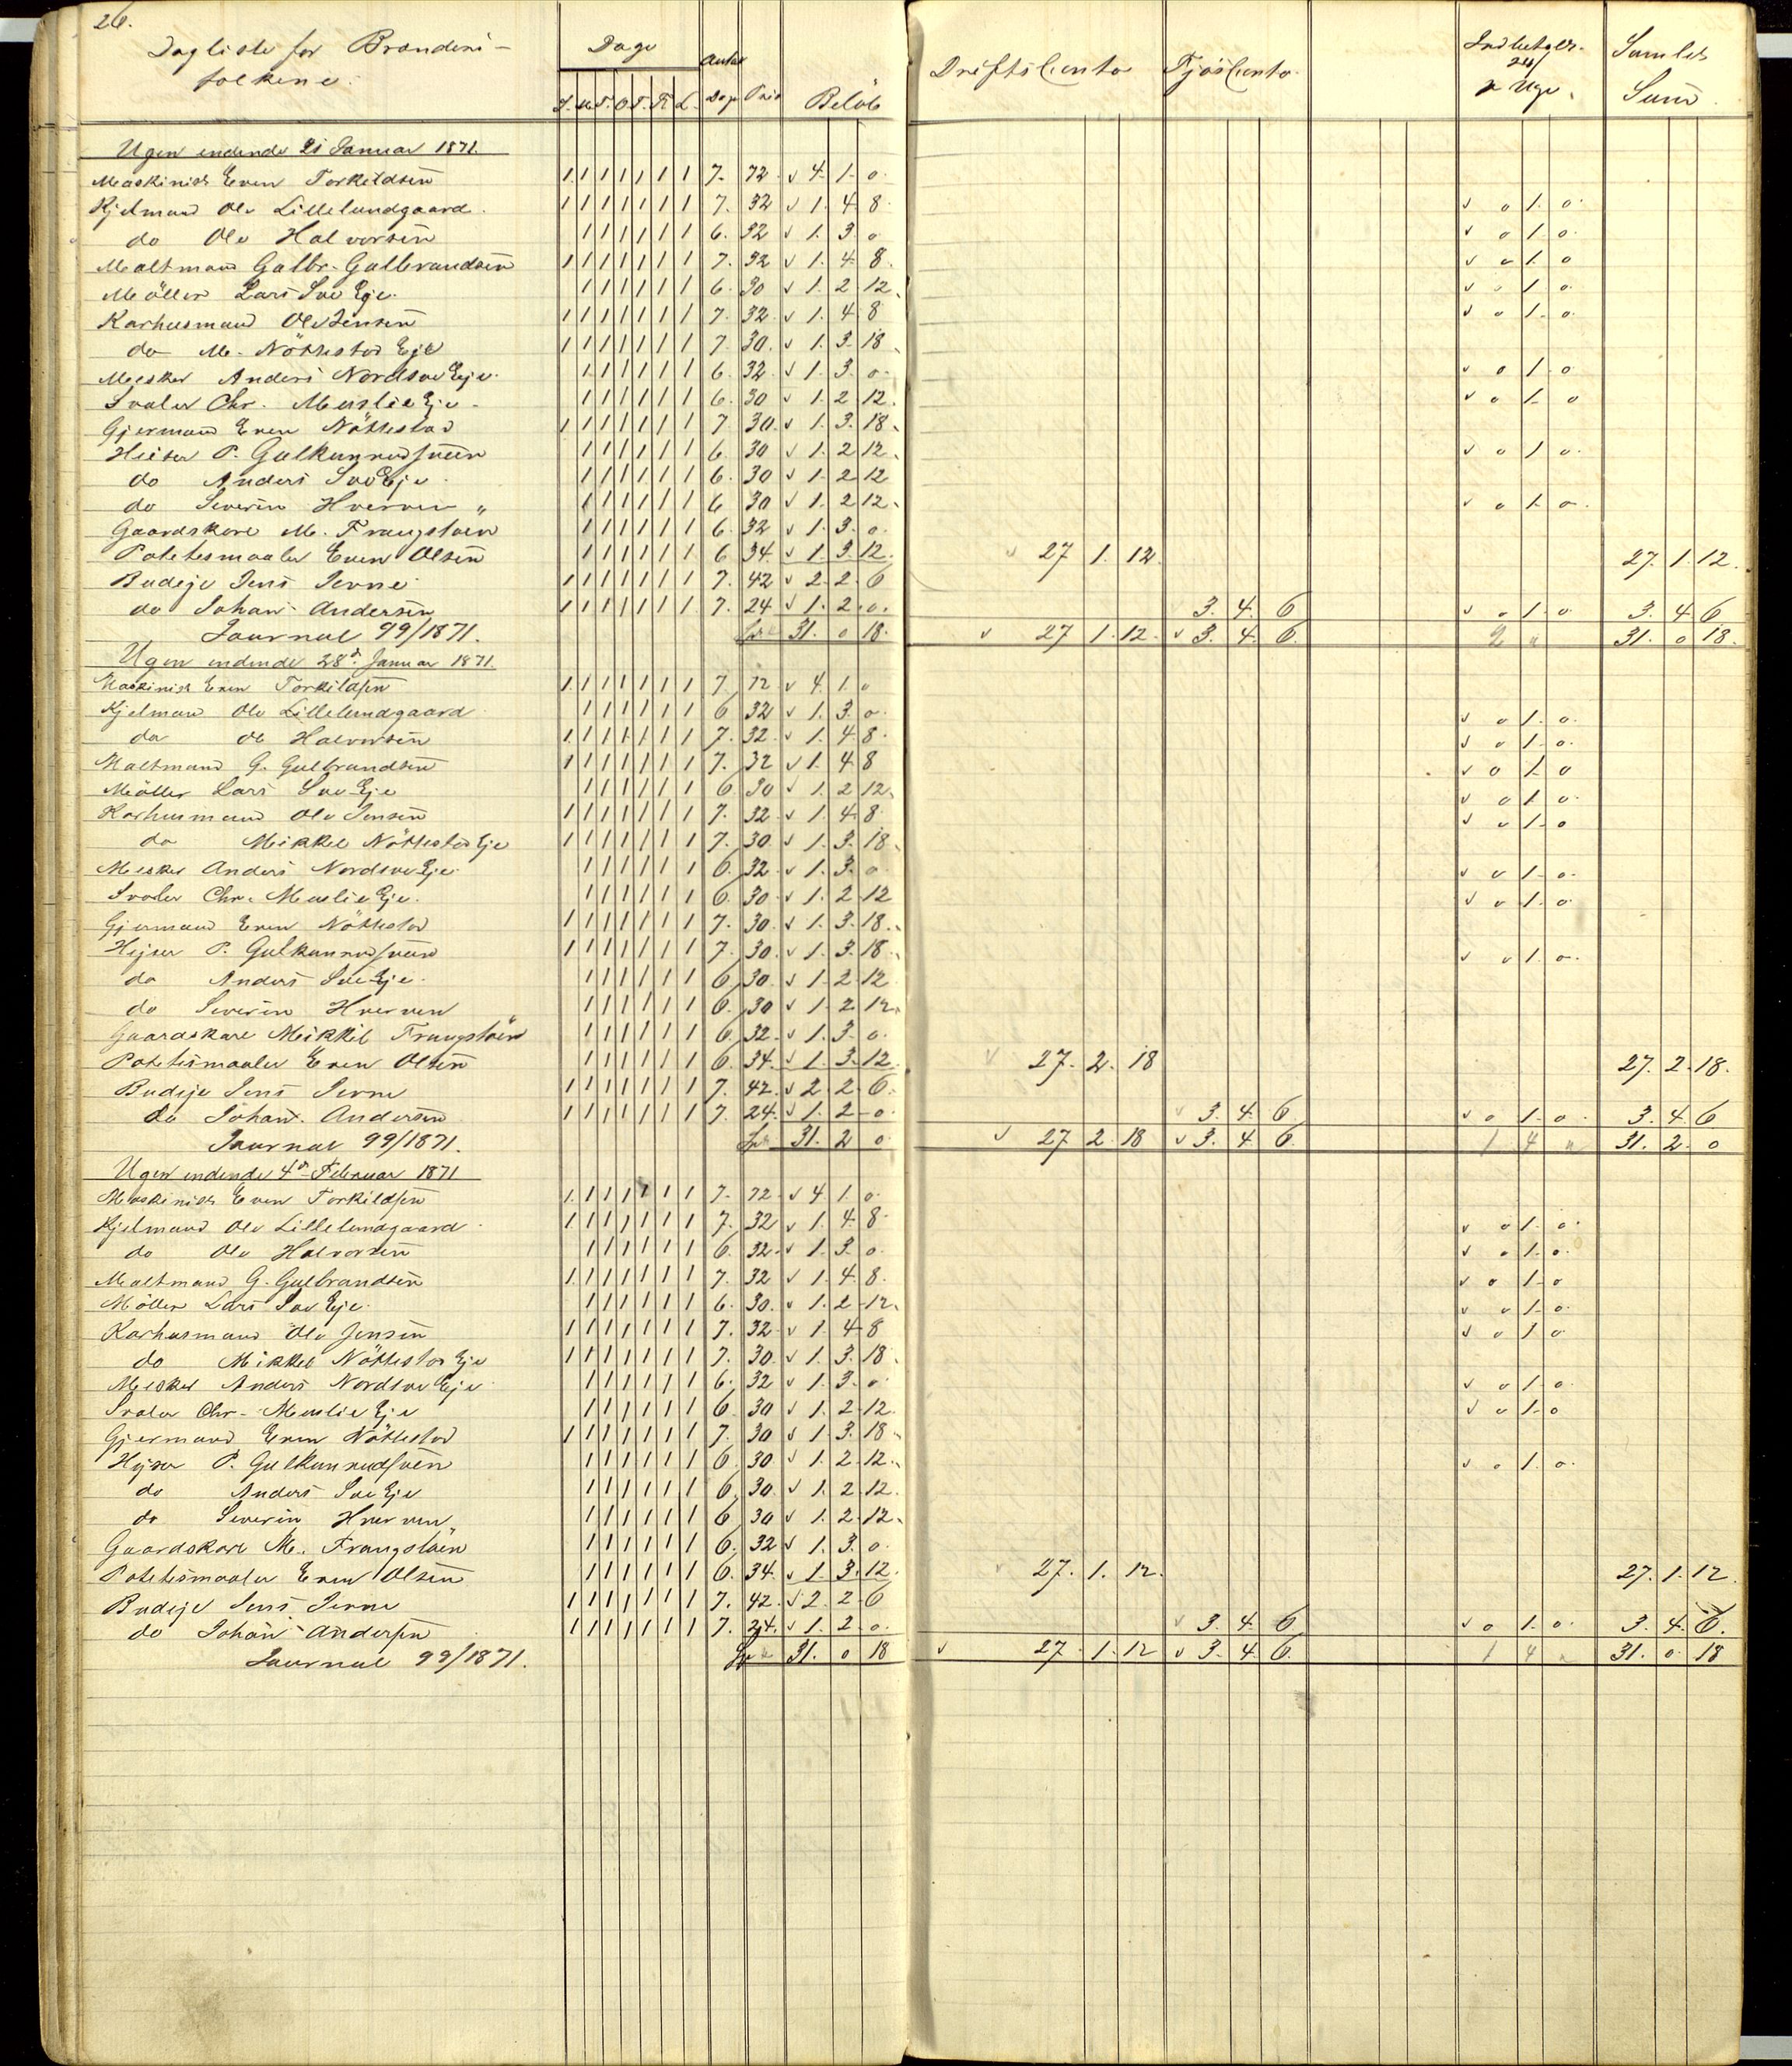 26.
Dagliste for Brænderi-
folkene.
Dage Antal
S. M. T. O. T. F. L. Dage Pris Beløb
Driftsconto Fjösconto Indbetalt 24/ pr Uge. Samlet Sum
Ugen endende 21 Januar 1871.
Maskinist Even Torkildsen 1 1 1 1 1 1 1 7. 72 v 4. 1. 0
Kjelmand Ole Lillelundgaard 1 1 1 1 1 1 1 7. 32 v 1. 4. 8. v 0 1. 0.
do Ole Halvorsen 1 1 1 1 1 1 6. 32 v 1. 3. 0 v 0 1. 0.
Maltmand Gulbr. Gulbrandsen 1 1 1 1 1 1 1 7. 32 v 1. 4. 8. v 0 1. 0
Möller Lars Sve Eje. 1 1 1 1 1 1 6. 30 v 1. 2. 12. v 0 1 0.
Karhusmand Ole Jensen 1 1 1 1 1 1 1 7. 32. v 1. 4 8 v 0 1. 0.
do M. Nöttestad Eje 1 1 1 1 1 1 1 7. 30. v 1. 3. 18.
Mesker Anders Nordsve Eje. 1 1 1 1 1 1 6. 32. v 1. 3. 0. v 0 1 0
Svaler Chr. Muslie Eje. 1 1 1 1 1 1 6. 30 v 1. 2 12. v 0 1. 0
Gjermand Even Nöttestad 1 1 1 1 1 1 1 7. 30. v 1. 3. 18.
Heiser P. Gulkunrudsveen 1 1 1 1 1 1 6. 30 v 1. 2 12. v 0 1 0.
do Anders Sve Eje. 1 1 1 1 1 1 6. 30 v 1. 2 12
do Severin Hverven " 1 1 1 1 1 1 6 30 v 1. 2 12. v 0 1. 0.
Gaardskare M. Frangstøen 1 1 1 1 1 1 6. 32 v 1. 3. 0.
Potetesmaaler Even Olsen 1 1 1 1 1 1 6 34. v 1. 3. 12. v 27 1. 12. 27. 1. 12.
Budeje Jens Jerne 1 1 1 1 1 1 1 7. 42 v 2. 2. 6
do Johan Andersen 1 1 1 1 1 1 1 7. 24 v 1. 2. 0. 3. 4. 6 v 0 1. 0. 3. 4. 6
Journal 99/1871. 31. 0 18. v 27 1. 12. v 3. 4. 6. 2 " 31. 0 18.
Ugen endende 28d. Januar 1871.
Maskinist Even Torkildsen 1 1 1 1 1 1 1 7. 72 v 4. 1. 0
Kjelmand Ole Lillelundgaard 1 1 1 1 1 1 6 32 v 1. 3. 0. v 0 1. 0.
do Ole Halvorsen 1 1 1 1 1 1 1 7. 32. v 1. 4. 8. v 0 1. 0.
Maltmand G. Gulbrandsen 1 1 1 1 1 1 1 7. 32 v 1. 4 8 v 0 1. 0
Möller Lars Sve Eje 1 1 1 1 1 1 6 30 v 1. 2 12. v 0 1. 0.
Karhusmand Ole Jensen 1 1 1 1 1 1 1 7. 32. v 1. 4. 8. v 0 1. 0
do Mikkel Nöttestad Eje 1 1 1 1 1 1 1 7. 30. v 1. 3. 18.
Mesker Anders Nordsve Eje 1 1 1 1 1 1 6. 32. v 1. 3. 0 v 0 1. 0.
Svaler Chr. Muslie Eje. 1 1 1 1 1 1 6. 30. v 1. 2 12 v 0 1. 0.
Gjermand Even Nöttestad 1 1 1 1 1 1 1 7. 30. v 1. 3. 18.
Hejser P. Gulkunrudsveen 1 1 1 1 1 1 1 7. 30. v 1. 3. 18. v 0 1. 0.
do Anders Sve Eje. 1 1 1 1 1 1 6 30. v 1. 2. 12.
do Severin Hverven 1 1 1 1 1 1 6. 30 v 1. 2 12.
Gaardskare Mikkel Frangstøen 1 1 1 1 1 1 6. 32. v 1. 3. 0.
Potetesmaaler Even Olsen 1 1 1 1 1 1 6. 34. v 1. 3. 12. v 27. 2. 18 27. 2. 18.
Budeje Jens Jerne 1 1 1 1 1 1 1 7. 42. v 2 2. 6.
do Johan. Andersen 1 1 1 1 1 1 1 7. 24. v 1. 2 0. v 3. 4. 6. v 0 1. 0. 3. 4. 6
Journal 99/1871. 31. 2 0. v 27 2. 18 v 3. 4. 6. 1 4 " 31. 2. 0
Ugen endende 4d. Februar 1871
Maskinist Even Torkildsen 1 1 1 1 1 1 1 7. 72. v 4. 1. 0.
Kjelmand Ole Lillelundgaard 1 1 1 1 1 1 1 7. 32 v 1. 4. 8. v 0 1. 0.
do Ole Halvorsen 1 1 1 1 1 1 6. 32. v 1. 3. 0. v 0 1. 0.
Maltmand G. Gulbrandsen 1 1 1 1 1 1 1 7. 32 v 1. 4. 8. v 0 1. 0
Möller Lars Sve Eje. 1 1 1 1 1 1 6. 30. v 1. 2 12. v 0 1. 0.
Karhusmand Ole Jensen 1 1 1 1 1 1 1 7. 32. v 1. 4 8 v 0 1. 0.
do Mikkel Nöttestad Eje 1 1 1 1 1 1 1 7. 30. v 1. 3. 18.
Mesker Anders Nordsve Eje. 1 1 1 1 1 1 6. 32 v 1. 3. 0. v 0 1. 0.
Svaler Chr. Muslie Eje 1 1 1 1 1 1 6. 30 v 1. 2. 12. v 0 1. 0
Gjermand Even Nöttestad 1 1 1 1 1 1 1 7. 30 v 1. 3. 18.
Hejser P. Gulkunrudsveen 1 1 1 1 1 1 6. 30. v 1. 2. 12. v 0 1. 0.
do Anders Sve Eje 1 1 1 1 1 1 6. 30. v 1. 2 12.
do Severin Hverven 1 1 1 1 1 1 6 30 v 1. 2. 12.
Gaardskare M. Frangstøen 1 1 1 1 1 1 6. 32 v 1. 3. 0.
Potetesmaaler Even Olsen 1 1 1 1 1 1 6. 34. v 1. 3. 12. v 27. 1. 12. 27. 1. 12.
Budeje Jens Jerne 1 1 1 1 1 1 1 7. 42. v 2. 2. 6
do Johan Andersen 1 1 1 1 1 1 1 7. 24. v 1. 2. 0. v 3. 4. 6 v 0 1. 0. 3. 4. 6.
Journal 99/1871. 31. 0 18 v 27. 1. 12 v 3. 4. 6. 1 4 " 31. 0. 18